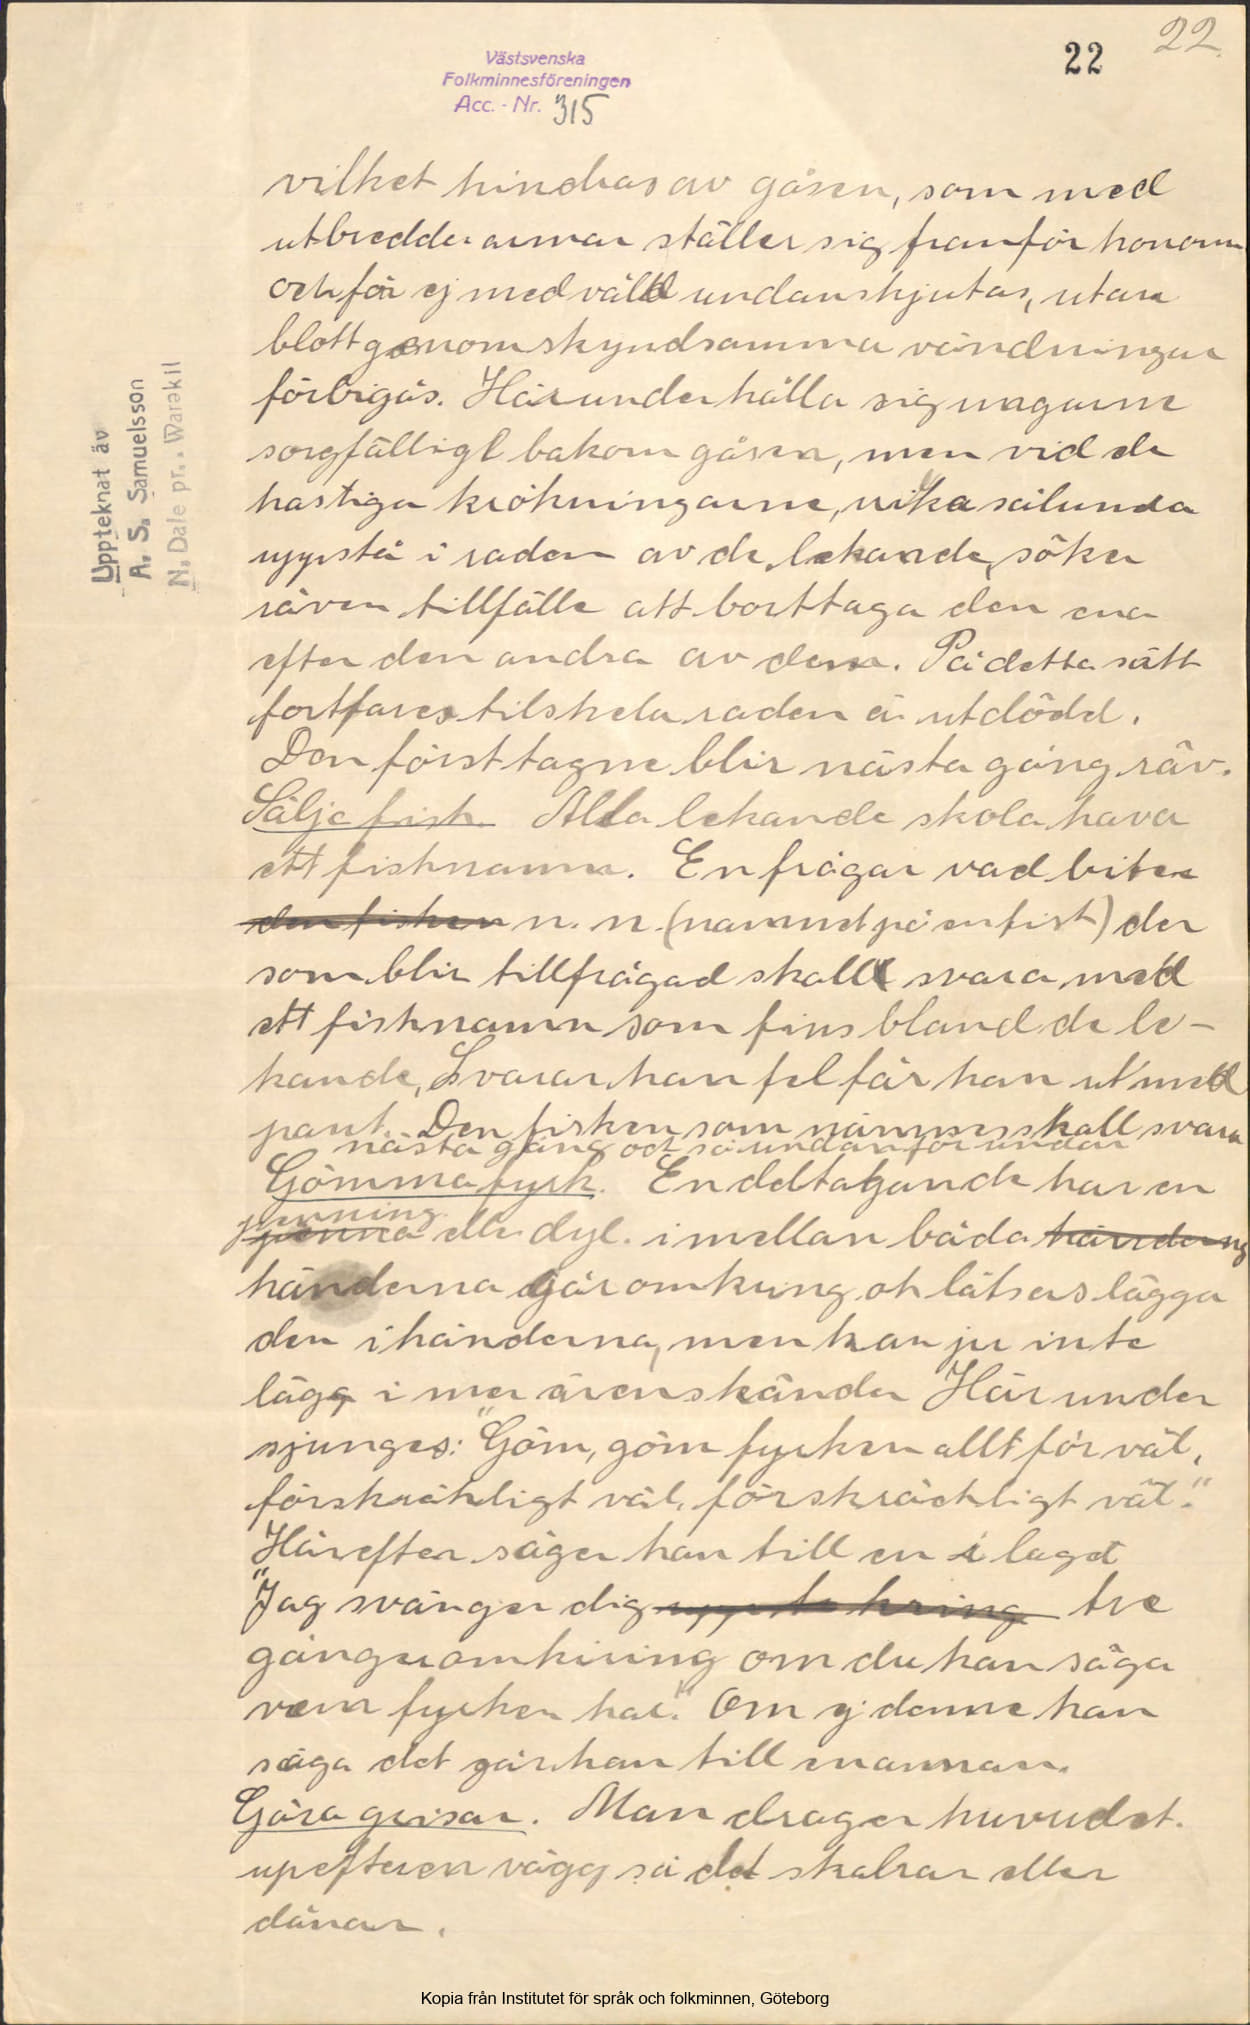 22 22.
Västsvenska
Folkminnesföreningen
Acc. - Nr. 315
Uppteknat äv
A. S. Samuelsson
N. Dale pr. Warekil
vilket hindras av gåsen, som med
utbredda armar ställer sig framför honom
och får ej med våld undanskjutas, utan
blott genom skyndsamma vändningar
förbigås. Härunder hålla sig ungarne
sorgfälligt bakom gåsen, men vid de
hastiga krökningarne, vilka sålunda
uppstå i raden av de lekande, söker
räven tillfälle att borttaga den ena
efter den andra av dem. På detta sätt
fortfares tils hela raden är utdödd.
Den först tagne blir nästa gång räv.
Sälja fisk Alla lekande skola hava
ett fisknamn. En frågar vad biter
den fisken n. n. (namnet på en fisk) den
som blir tillfrågad skall svara med
ett fisknamn som fins bland de le-
kande, Svarar han fel får han ut med
pant. Den fisken som nämnes skall svara
nästa gång och så undan för undan
Gömma fyrk. En deltagande har en
penning
penna eller dyl. i mellan båda händerna
händerna går omkring oh låtsas lägga
den i händerna, men kan ju inte
lägg i mer än en s händer Här under
sjunges: "Göm, göm fyrken allt för väl,
förskräkligt väl, förskräckligt väl."
Härefter säger han till en i laget
"Jag svänger dig tre
gånger omkring om du kan säga
vem fyrken har." Om ej denne kan
säga det går han till en annan.
Göra grisar. Man drager huvudet.
up efter en vägg så det skalrar eller
dånar.
Kopia från Institutet för språk och folkminnen, Göteborg